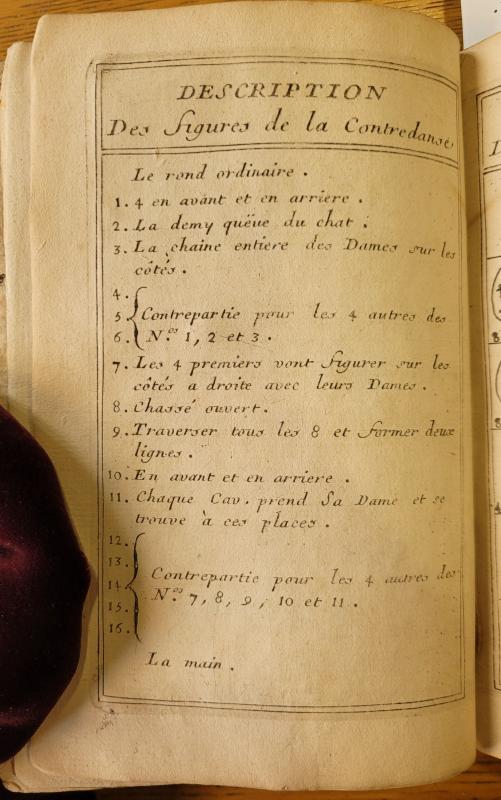 DESCRIPTION
Des figures de la Contredanse
Le rond ordinaire.
1. 4 en avant et en arriere.
2. La demy queüe du chat.
3. La chaine entiere des Dames sur les
côtés.
4.
5. Contrepartie pour les 4 autres des
6. N.os 1, 2 et 3.
7. Les 4 premiers vont figurer sur les
côtés a droite avec leurs Dames.
8. Chassé ouvert.
9. Traverser tous les 8 et former deux
lignes.
10. En avant et en arriere.
11. Chaque Cav. prend Sa Dame et se
trouve à ces places.
12.
13.
14. Contrepartie pour les 4 autres des
15. N.os 7, 8, 9, 10 et 11.
16.
La main.